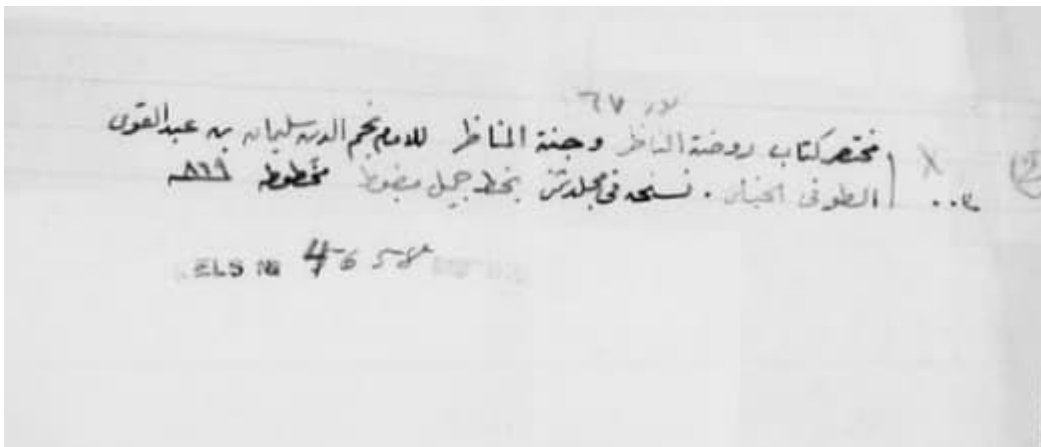 ٦٧
مختصر كتاب روضة الناظر وجنة المناظر للامام نجم الدين سليمان بن عبد القوى
الطوفى الحنبلى . نسخة فى مجلدين بخط جميل مضبوط مخطوطه ٨٦٩ هـ
ELS №